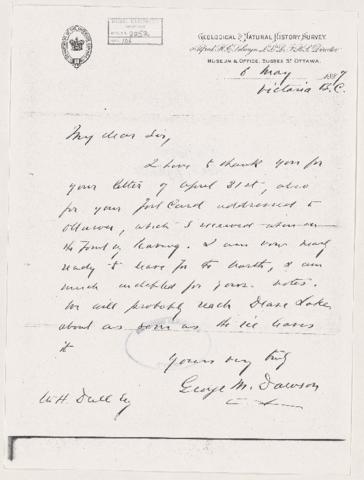 GEOLOGICAL & NATURAL HISTORY SURVEY.
Alfred R. C. Selwyn L.L.D. F.R.S. Director
MUSEUM & OFFICE, SUSSEX ST OTTAWA.
6 May 1887
Victoria B.C.
My dear Sir,
I have to thank you for
your letter of April 21st, also
for your Post Card addressed to
Ottawa, which I received when on
the point of leaving. I am now nearly
ready to leave for the north, & am
much indebted for your notes.
We will probably reach Dease Lake
about as soon as the ice leaves
it
Yours very truly
George M. Dawson
W.H. Dall Esq